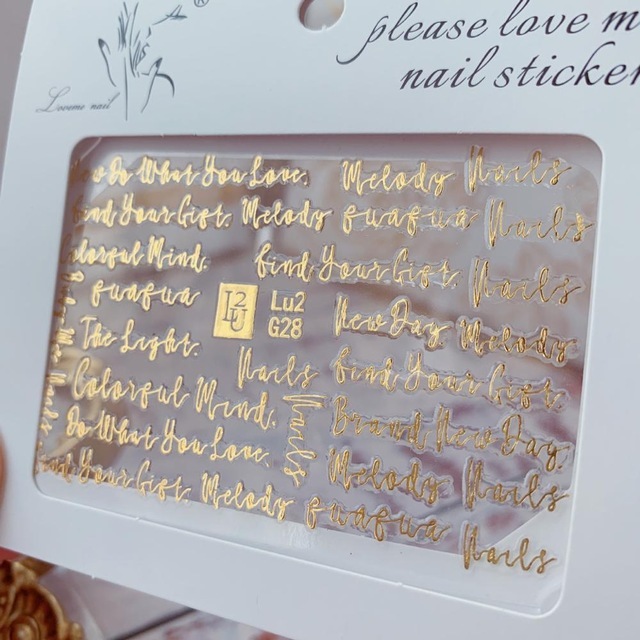 ®
Loveme nail
please love m
nail sticker
Do What You Love. Melody Nails.
Your Gift. Melody Nails
Mind. Find Your Gift. Nails
L2U Lu2
G28
New Day. Melody
The Light.
Nails Find Your Gift.
Colorful Mind. Nails Brand New Day.
Do What You Love. Melody Nails
Your Gift. Melody
Nails